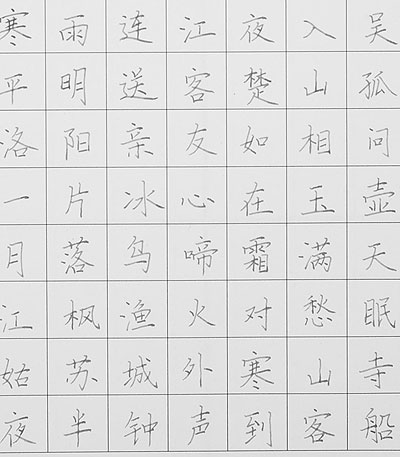 寒雨连江夜入吴
平明送客楚山孤
洛阳亲友如相问
一片冰心在玉壶
月落鸟啼霜满天
江枫渔火对愁眠
姑苏城外寒山寺
夜半钟声到客船